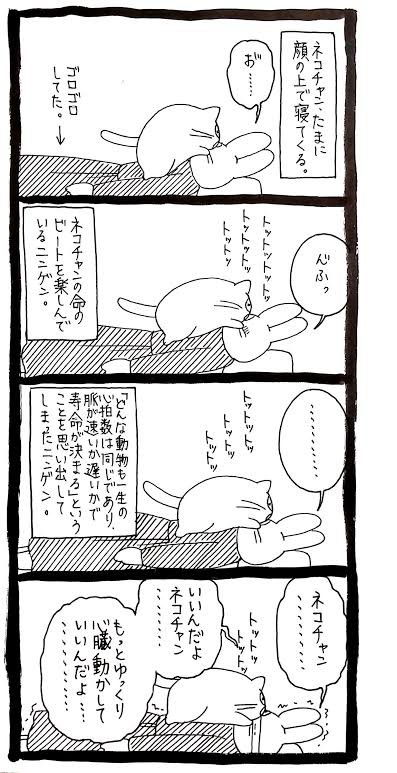 ネコチャン、たまに
顔の上で寝てくる。
お゛……
ゴロゴロ
してた。→
んふっ
トットットットッ
トットットッ
トットッ
ネコチャンの命の
ビートを楽しんで
いるニンゲン。
…………
トットットッ
トットッ
トットッ
「どんな動物も一生の
心拍数は同じであり、
脈が速いか遅いかで
寿命が決まる」という
ことを思い出して
しまったニンゲン。
ネコチャン
…………
トットッ
トットッ
トットッ
いいんだよ
ネコチャン
…………
もっとゆっくり
心臓動かして
いいんだよ……
…………